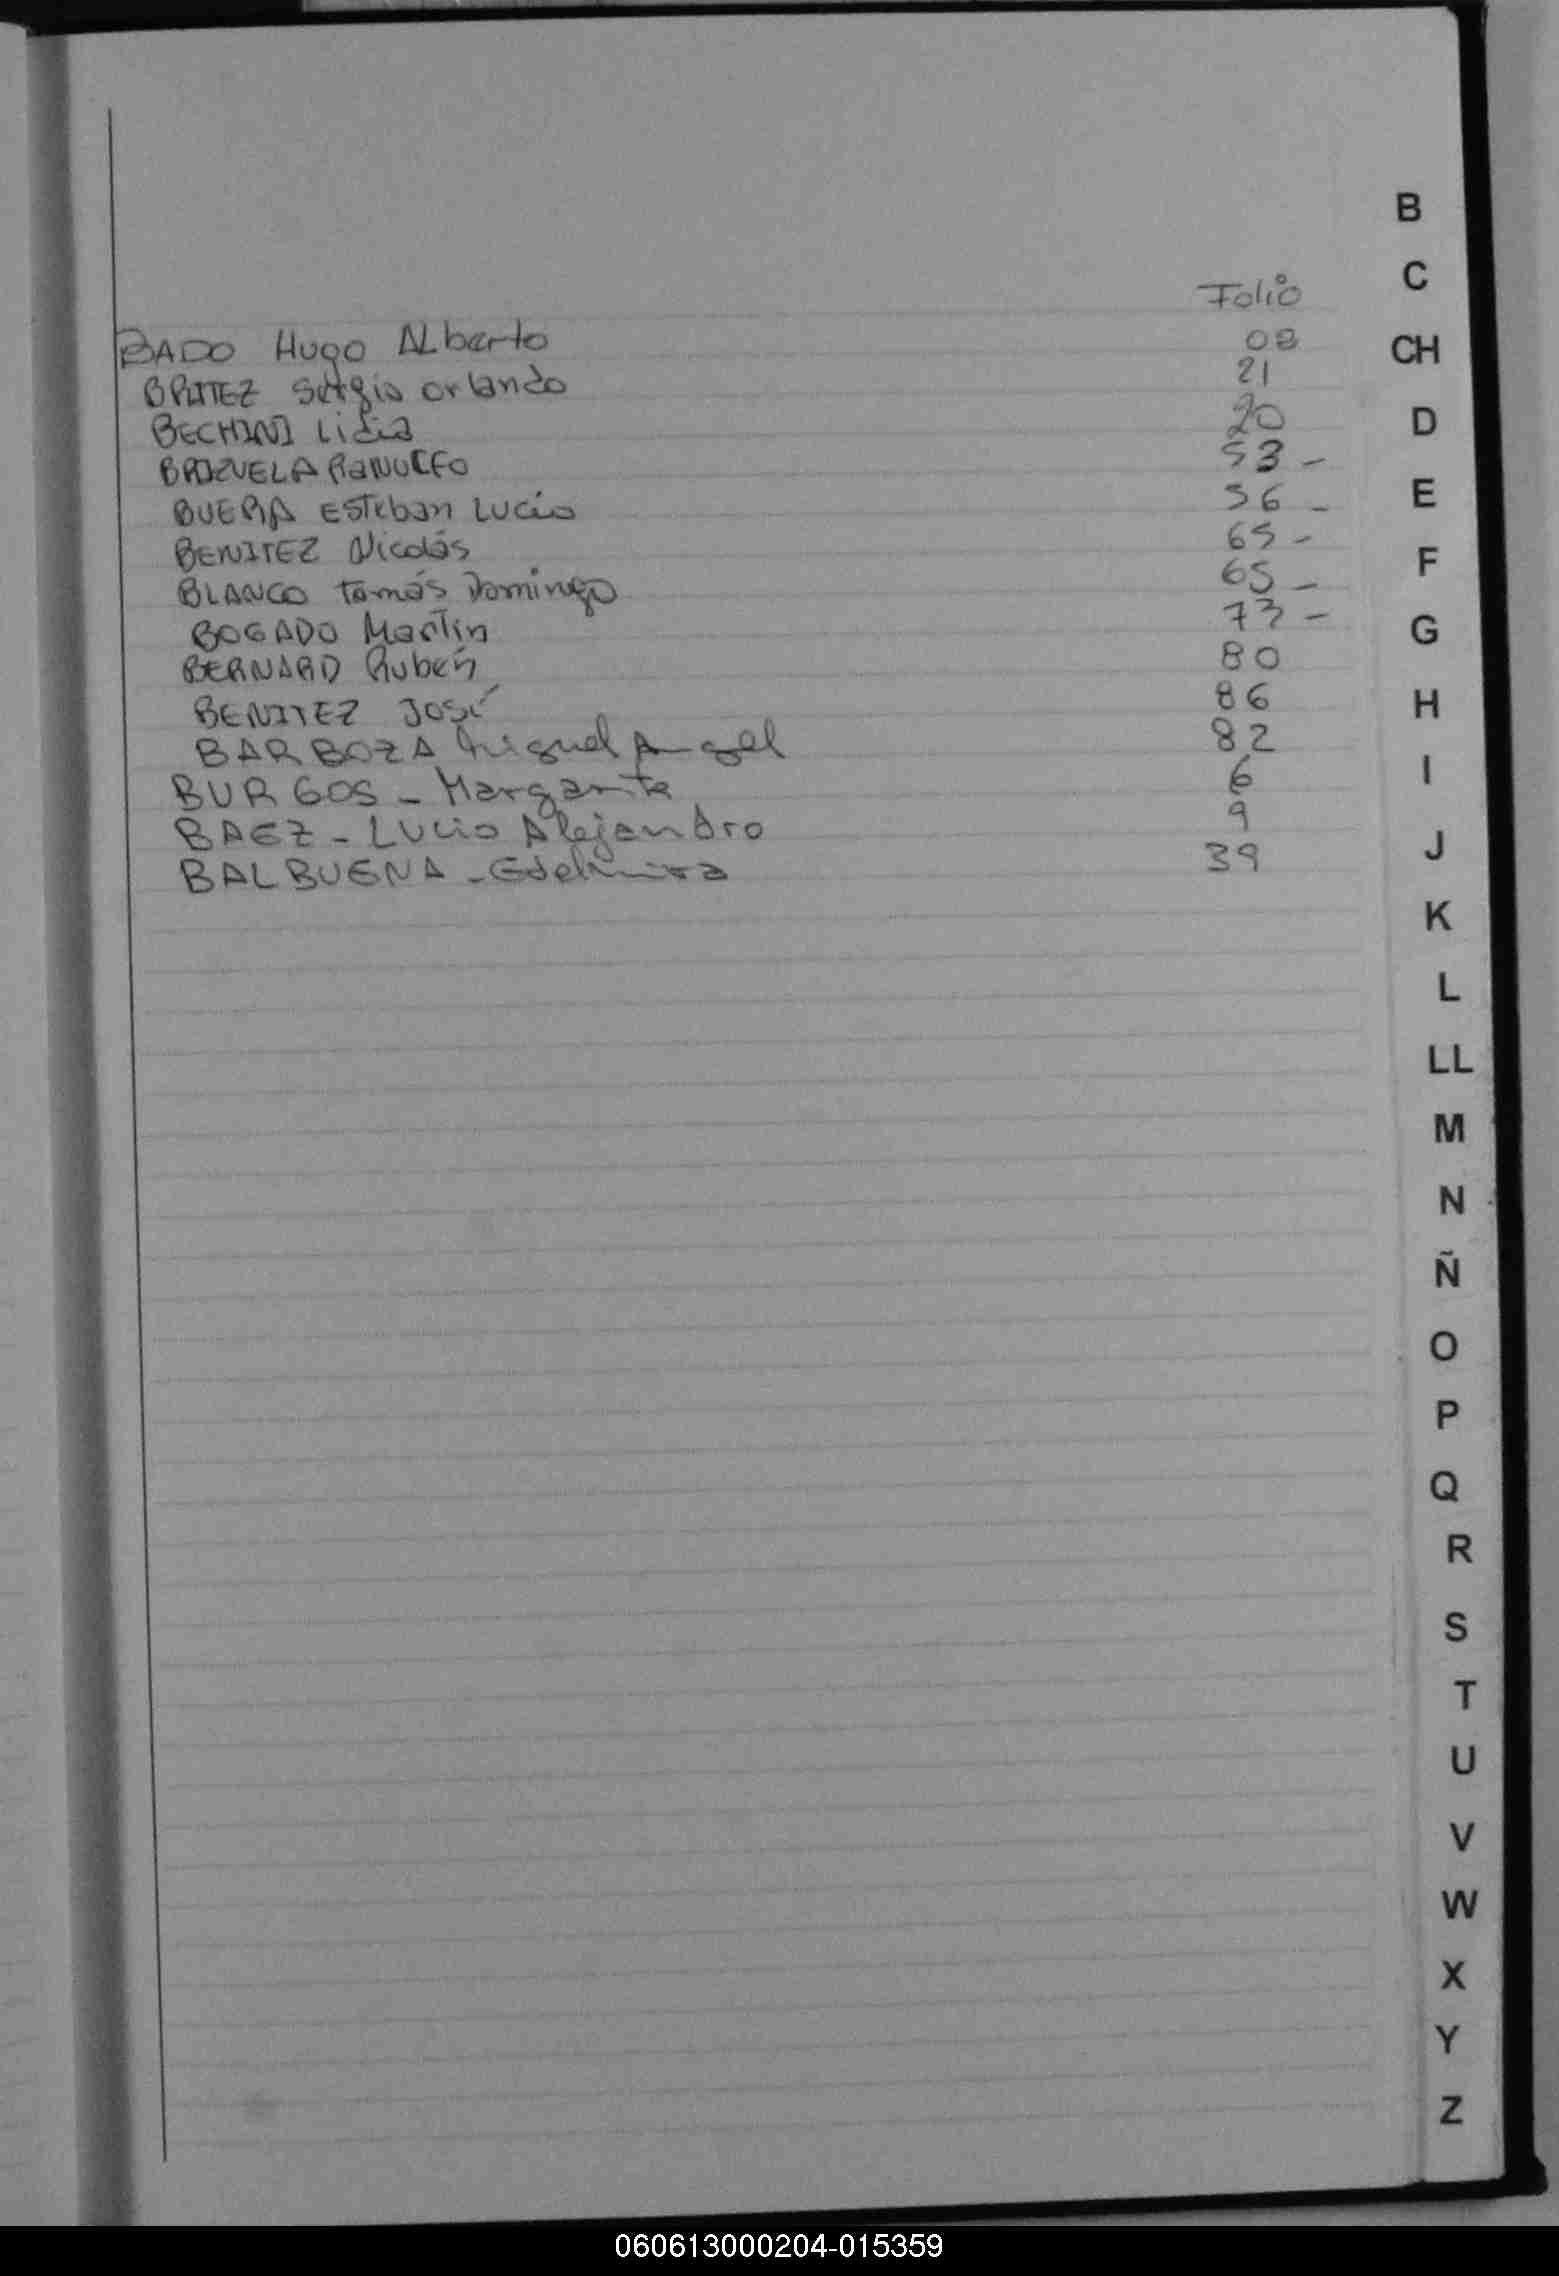 Folio
BADO Hugo ALberto 08
BRITEZ Sergio orlando 21
BECHINI Lidia 20
BRIZUELA RANULFO 53 -
BUERA Esteban Lucio 56 -
BENITEZ Nicolás 65 -
BLANCO Tomás Domingo 65 -
BOGADO Martín 73 -
BERNARD Rubén 80
BENITEZ José 86
BARBOZA Miguel Angel 82
BURGOS - Margarita 6
BAEZ - Lucio Alejandro 9
BALBUENA - Edelmira 39
B
C
CH
D
E
F
G
H
I
J
K
L
LL
M
N
Ñ
O
P
Q
R
S
T
U
V
W
X
Y
Z
060613000204-015359